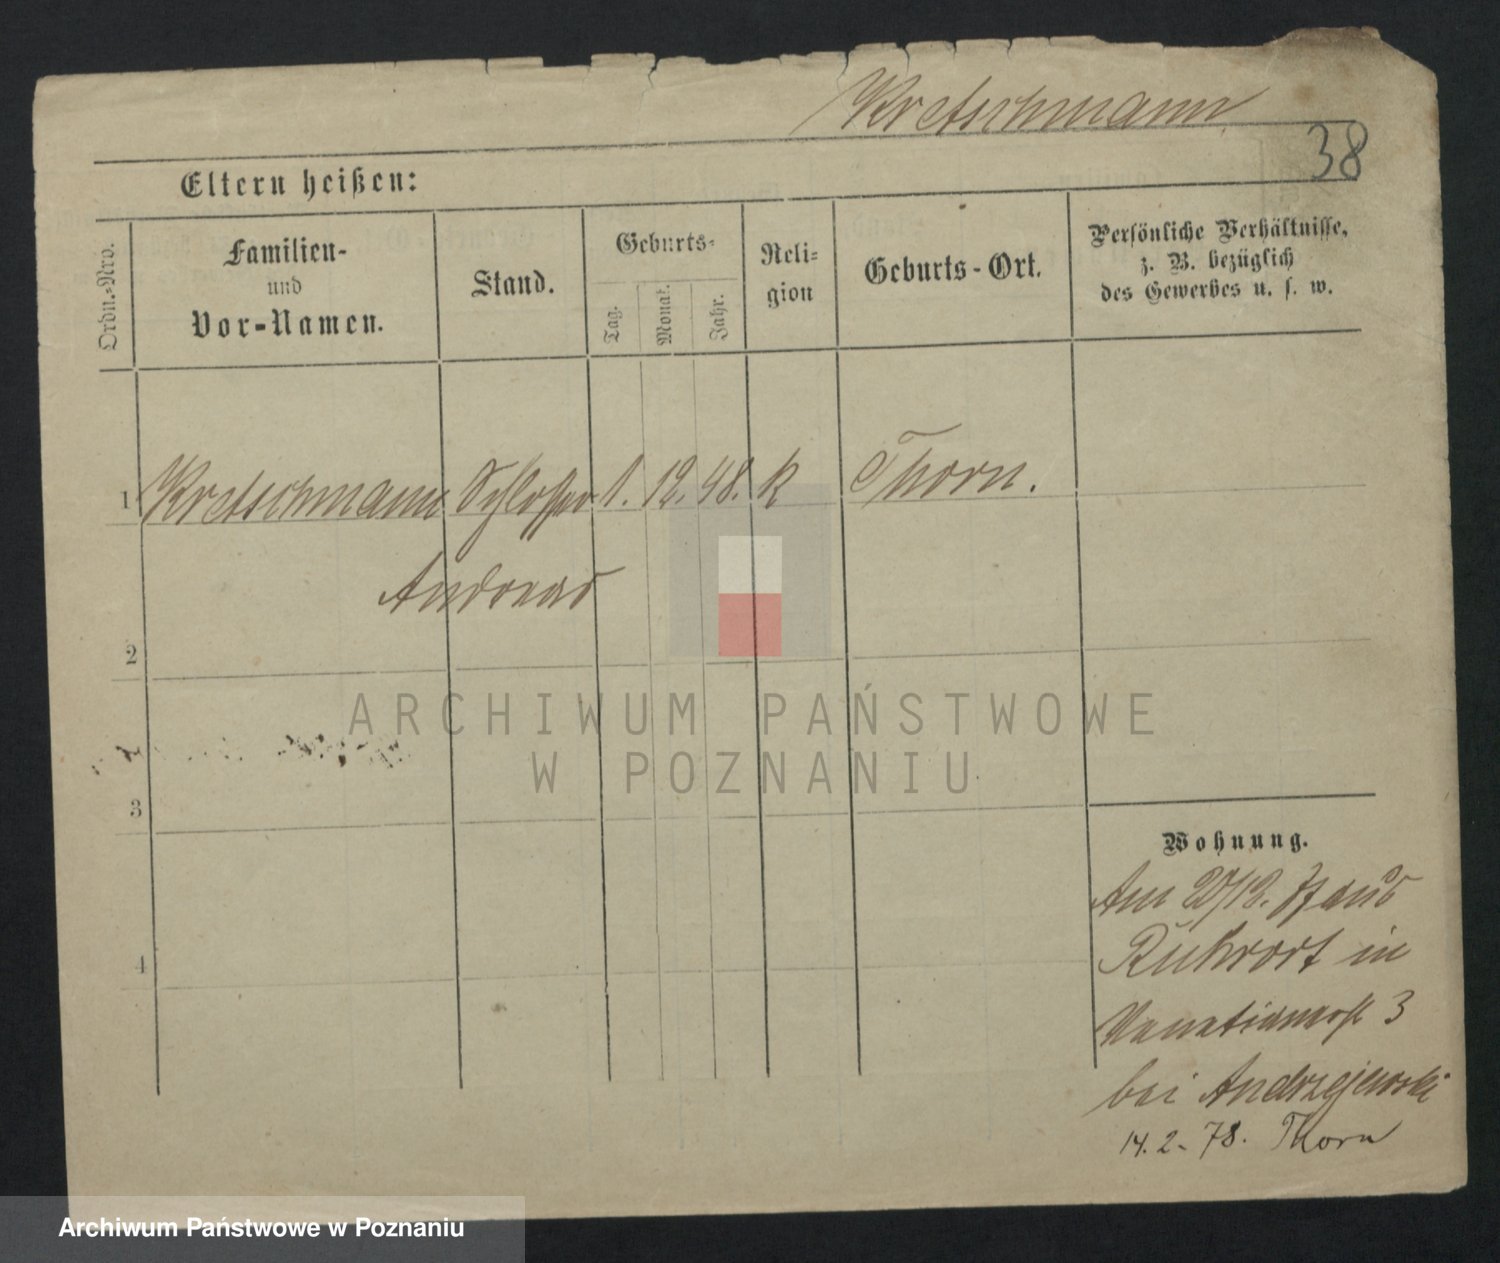 Kretschmann
38
Eltern heißen:
Ordn.-Nro.
Familien-
und
Vor-Namen.
Stand.
Geburts-
Tag.
Monat.
Jahr.
Reli-
gion
Geburts-Ort.
Persönliche Verhältnisse,
z. B. bezüglich
des Gewerbes u. s. w.
1 Kretschmann Schlosser 1. 12. 48. k Thorn.
Andreas
2
3
4
Wohnung.
Am 20/12. 77 aus
Ruhrort in
Venetianerst 3
bei Andrzejewski
14. 2. 78. Thorn
ARCHIWUM PAŃSTWOWE
W POZNANIU
Archiwum Państwowe w Poznaniu